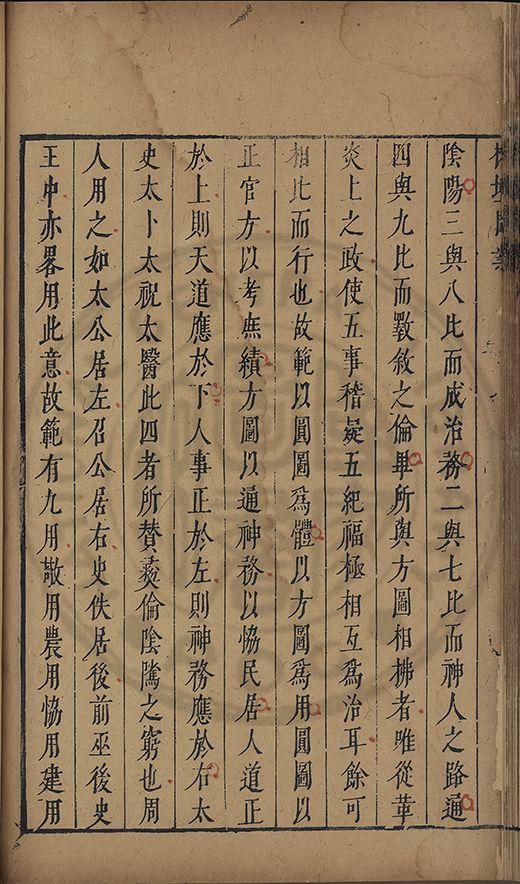 榕壇問業
陰陽三與八比而成治務二與七比而神人之路通
四與九比而斁敘之倫畢所與方圖相拂者唯從革
炎上之政使五事稽疑五紀福極相互爲治耳餘可
相比而行也故範以圓圖爲體以方圖爲用圓圖以
正官方以考庶績方圖以通神務以恊民居人道正
於上則天道應於下人事正於左則神務應於右太
史太卜太祝太醫此四者所賛彛倫陰隲之窮也周
人用之如太公居左召公居右史佚居後前巫後史
王中亦畧用此意故範有九用敬用農用恊用建用